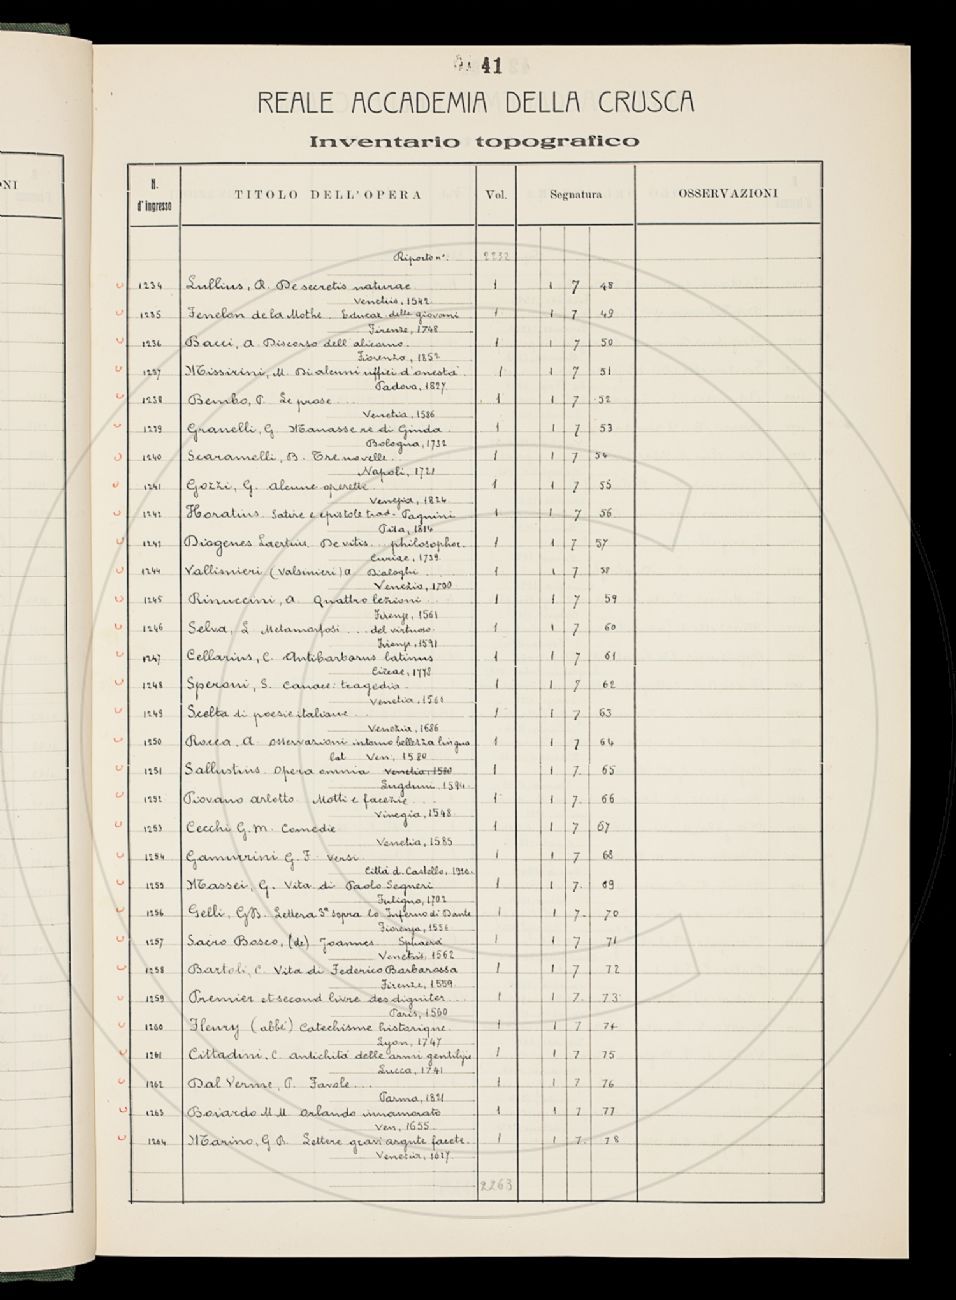 41
REALE ACCADEMIA DELLA CRUSCA
Inventario topografico
ONI
N. d'ingresso TITOLO DELL'OPERA Vol. Segnatura OSSERVAZIONI
Riporto n°. 2232
1234 Lullius, R. De secretis naturae 1 1 7 48
Venetiis, 1542
1235 Fenelon de la Mothe. Educaz delle giovani 1 1 7 49
Firenze, 1748
1236 Bacci, A. Discorso dell'alicorno. 1 1 7 50
Fiorenza, 1852
1237 Missirini, M. Di alcuni uffici d'onestà. 1 1 7 51
Padova, 1827
1238 Bembo, P. Le prose ... 1 1 7 52
Venetia, 1586
1239 Granelli, G. Manasse re di Giuda. 1 1 7 53
Bologna, 1732
1240 Scaramelli, B. Tre novelle. 1 1 7 54
Napoli, 1721
1241 Gozzi, G. Alcune operette. 1 1 7 55
Venezia, 1824
1242 Horatius. Satire e epistole trad. Pagnini 1 1 7 56
Pisa, 1814
1243 Diogenes Laertius. De vitis... philosophor. 1 1 7 57
Curiae, 1739
1244 Vallisnieri (Valsinieri) A Dialoghi ... 1 1 7 58
Venezia, 1700
1245 Rinuccini, A. Quattro lezioni ... 1 1 7 59
Firenze, 1561
1246 Selva, L. Metamorfosi ... del virtuoso. 1 1 7 60
Firenze, 1591
1247 Cellarius, C. Antibarbarus latinus 1 1 7 61
1778
1248 Speroni, S. Canace: tragedia. 1 1 7 62
Venetia, 1561
1249 Scelta di poesie italiane ... 1 1 7 63
Venezia, 1686
1250 Rocca, A. Osservazioni intorno bellezza lingua 1 1 7 64
lat. Ven, 1580
1251 Sallustius. Opera omnia Venetia, 1580 1 1 7. 65
Lugduni, 1594.
1252 Piovano Arlotto. Motti e facezie ... 1 1 7. 66
Vinegia, 1548
1253 Cecchi G. M. Comedie 1 1 7 67
Venetia, 1585
1254 Gamurrini G. F. Versi 1 1 7 68
Città d. Castello, 1920.
1255 Massei, G. Vita di Paolo Segneri 1 1 7. 69
Fuligno, 1702
1256 Gelli, G.B. Lettera 3ª sopra lo Inferno di Dante 1 1 7. 70
Fiorenza, 1556
1257 Sacro Bosco, (de) Joannes. Sphaera 1 1 7 71
Venetiis, 1562
1258 Bartoli, C. Vita di Federico Barbarossa 1 1 7 72
Firenze, 1559
1259 Premier et second livre des digniter ... 1 1 7. 73
Paris, 1560
1260 Fleury (abbé) Catechisme historique. 1 1 7 74
Lyon, 1747
1261 Cittadini, C. Antichità delle armi gentilizie 1 1 7 75
Lucca, 1741
1262 Dal Verme, P. Favole ... 1 1 7 76
Parma, 1821
1263 Boiardo M. M. Orlando innamorato 1 1 7 77
Ven, 1655
1264 Marino, G. B. Lettere gravi argute facete. 1 1 7. 78
Venetia, 1627.
2263